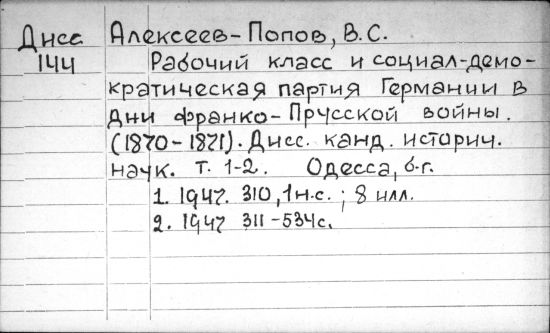 Дисс Алексеев-Попов, В.С.
144 Рабочий класс и социал-демо-
кратическая партия Германии в
дни франко-Прусской войны.
(1870-1871). Дисс. канд. историч.
наук. т. 1-2. Одесса, б.г.
1. 1947. 310, 1н.с. ; 8 илл.
2. 1947 311-534с.